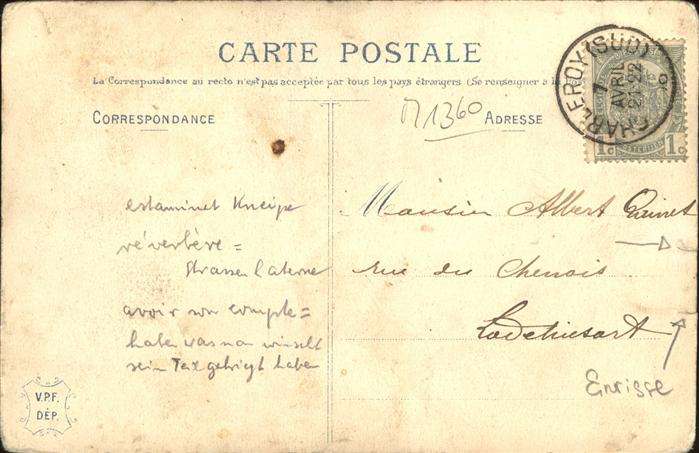 CARTE POSTALE
La Correspondance au recto n'est pas acceptée par tous les pays étrangers (Se renseigner à la
CORRESPONDANCE
ADRESSE
1360
CHARLEROY (SUD)
7
AVRIL
21-22
1c 1c
estaminet Kneipe
réverbère =
Strassenlaterne
avoir son compte =
haben was man
sein haben
Monsieur Albert
rue du Chenois
Lodelinsart
Enrisse
V.P.F.
DÉP.